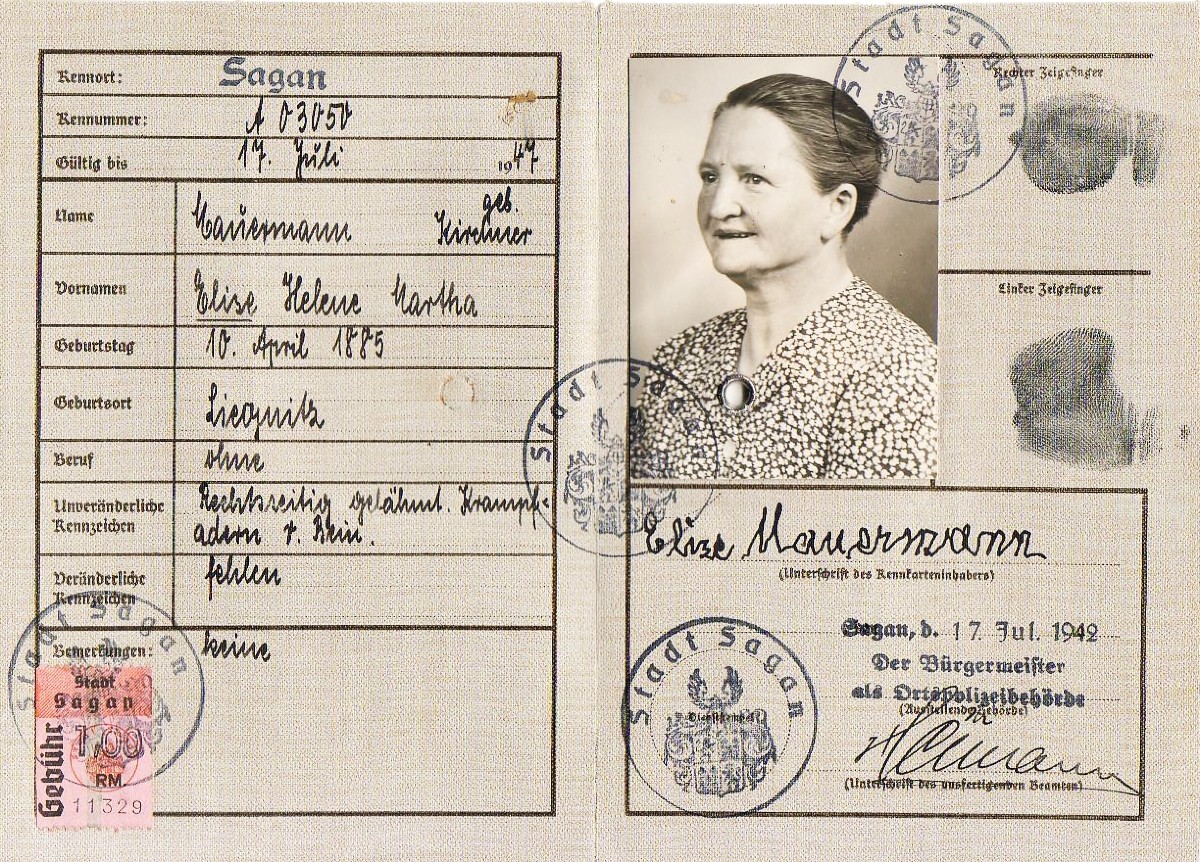 Kennort: Sagan
Kennummer: A 03050
Gültig bis 17. Juli 1947
Name Mauermann geb. Kirchner
Vornamen Elise Helene Martha
Geburtstag 10. April 1885
Geburtsort Liegnitz
Beruf ohne
Unveränderliche Kennzeichen Rechtsseitig gelähmt. Krampf-
adern r. Bein.
Veränderliche Kennzeichen fehlen
Bemerkungen: keine
Stadt Sagan
Stadt
Sagan
Gebühr
1,00
RM.
11329
Stadt Sagan
Stadt Sagan
Rechter Zeigefinger
Linker Zeigefinger
Elise Mauermann
(Unterschrift des Kennkarteninhabers)
Sagan, d. 17. Jul. 1942
Der Bürgermeister
als Ortspolizeibehörde
(Ausstellende Behörde)
Stadt Sagan
Dienststempel
(Unterschrift des ausfertigenden Beamten)